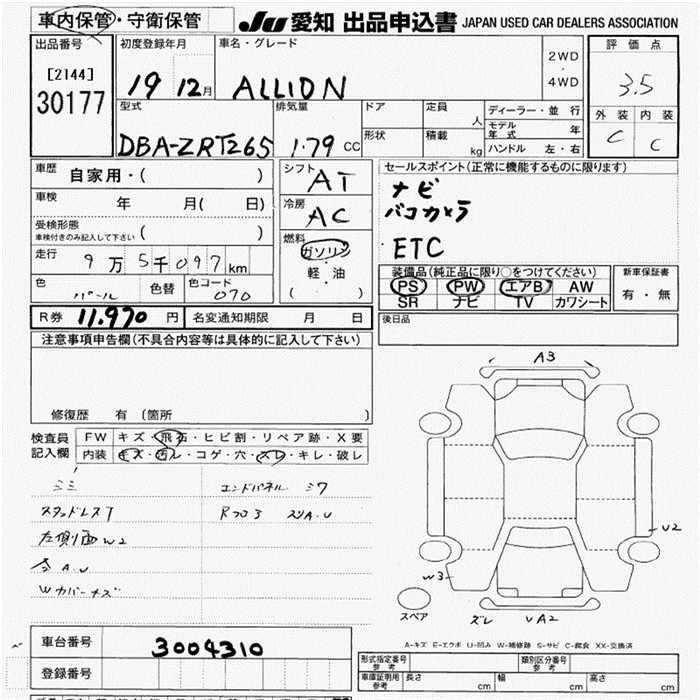 車内保管・守衛保管
JU 愛知 出品申込書 JAPAN USED CAR DEALERS ASSOCIATION
出品番号
[2144]
30177
初度登録年月
19 12月
車名・グレード
ALLION
2WD
・
4WD
評価点
3.5
外装 内装
C C
型式
DBA-ZRT265
排気量
1.79 CC
ドア
形状
定員 人
積載 kg
ディーラー・並行
モデル年式 年
ハンドル 左・右
車歴 自家用・( )
車検 年 月( 日)
受検形態
車検付きのみ記入して下さい ( )
走行 9万5千097km
色 パール 色替 色コード 070
シフト AT
冷房 AC
燃料
ガソリン
・
軽・油
( )
セールスポイント(正常に機能するものに限ります)
ナビ
バコカメラ
ETC
装備品(純正品に限り〇をつけてください)
PS PW エアB AW
SR ナビ TV カワシート
新車保証書
有・無
R券 11,970 円 名変通知期限 月 日
後日品
注意事項申告欄(不具合内容等は具体的に記入して下さい)
修復歴 有〔箇所 〕
検査員記入欄
FW キズ・飛石・ヒビ割・リペア跡・X要
内装 キズ・汚レ・コゲ・穴・スレ・キレ・破レ
エンドパネル ミワ
スタッドレスT
左側面W2
A.U
Wカバーキズ
A3
U2
W3
スペア
ズレ UA2
A-キズ E-エクボ U-凹み W-補修跡 S-サビ C-腐食 XX-交換済
車台番号 3004310
登録番号
形式指定番号 参考
類別区分番号 参考
車庫証明用 参考 長さ cm 幅 cm 高さ cm